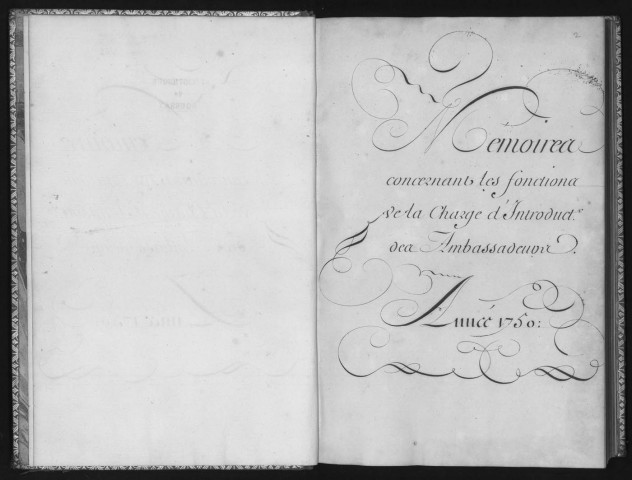 2
Mémoires
concernant les fonctions
de la Charge d'Introduct.r
des Ambassadeurs.
Année 1750: